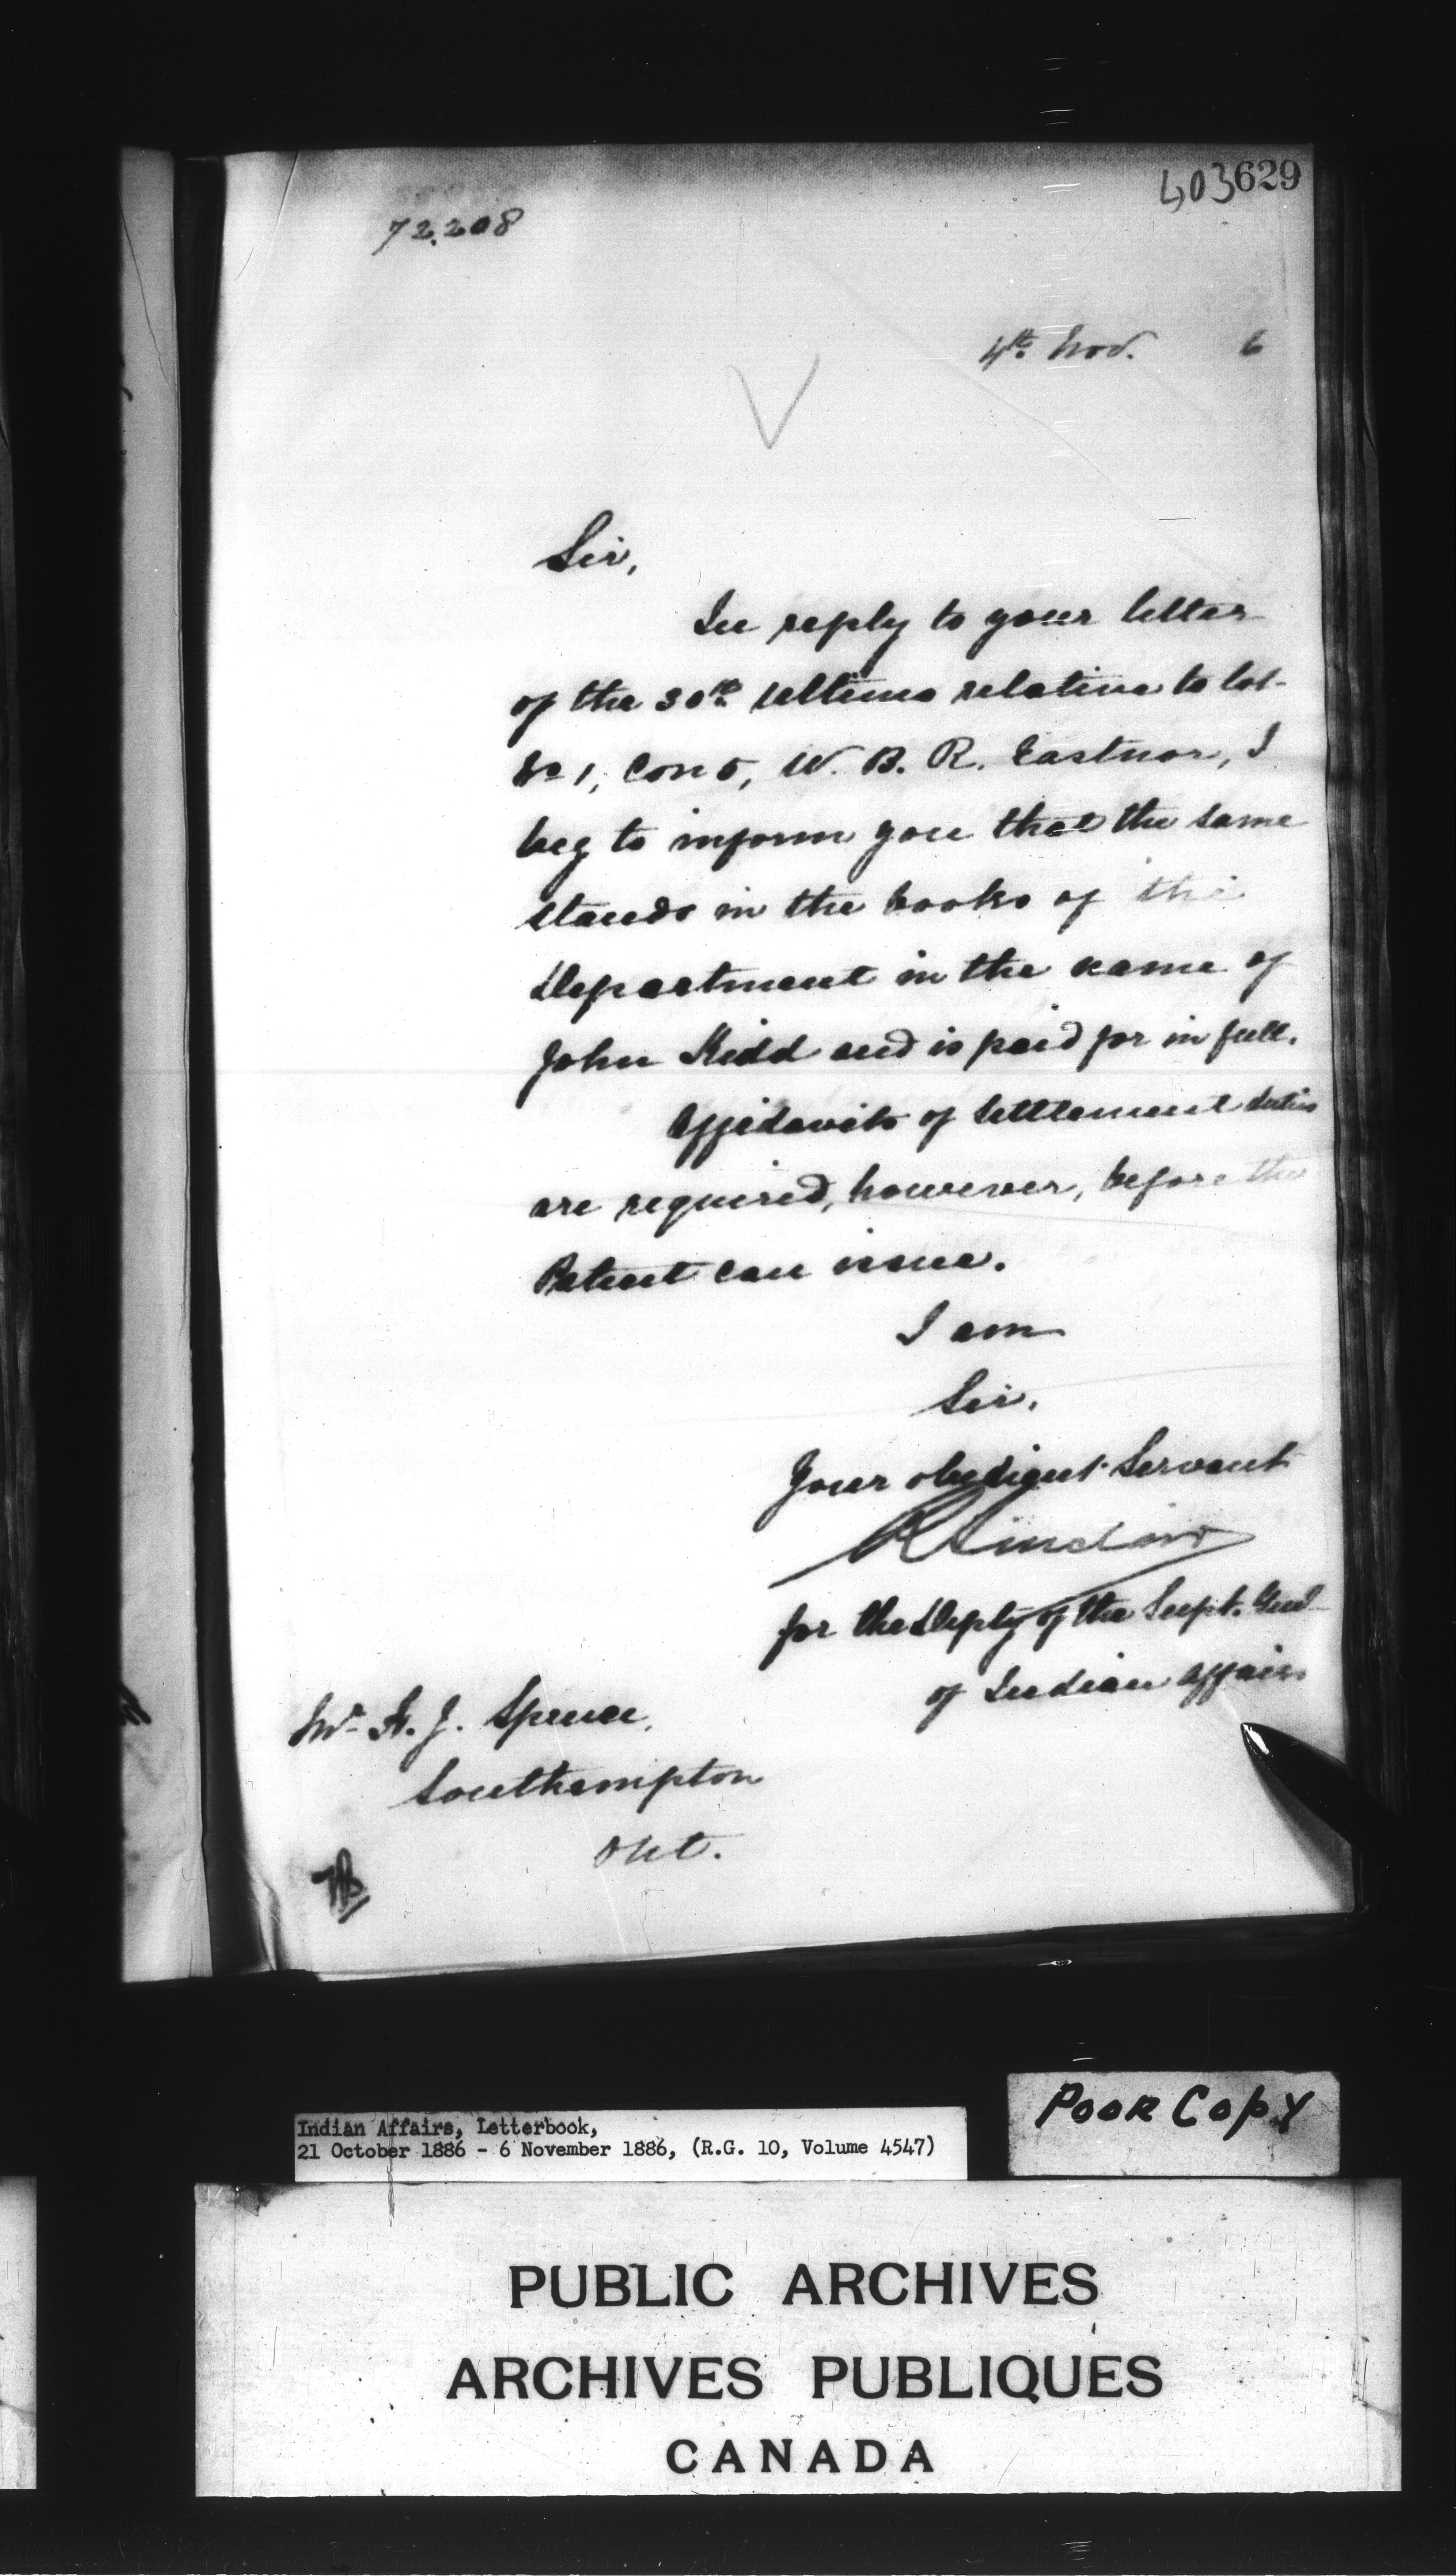 403629
72.208
4th. Nov. 6
Sir,
In reply to your letter
of the 30th ultimo relative to lot
No 1, Con 5, W. B. R. Eastnor, I
beg to inform you that the same
stands in the books of the
Department in the name of
John Kidd and is paid for in full.
Affidavits of Settlement duties
are required, however, before the
Patent can issue.
I am
Sir,
Your obedient Servant
R Sinclair
for the Depty of the Supt. Genl
of Indian Affairs
Mr A. J. Spence,
Southampton
Ont.
Indian Affairs, Letterbook,
21 October 1886 - 6 November 1886, (R.G. 10, Volume 4547)
POOR COPY
PUBLIC ARCHIVES
ARCHIVES PUBLIQUES
CANADA